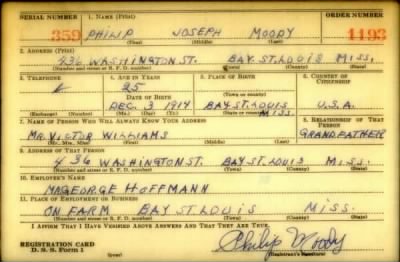 SERIAL NUMBER 1. NAME (Print) ORDER NUMBER
359 PHILIP JOSEPH MOODY 1193
(First) (Middle) (Last)
2. ADDRESS (Print)
436 WASHINGTON ST. BAY ST. LOUIS MISS.
(Number and street or R. F. D. number) (Town) (County) (State)
3. TELEPHONE 4. AGE IN YEARS 5. PLACE OF BIRTH 6. COUNTRY OF CITIZENSHIP
25
DATE OF BIRTH BAY ST. LOUIS
(Town or county)
DEC. 3 1914 MISS. U.S.A.
(Exchange) (Number) (Mo.) (Day) (Yr.) (State or country)
7. NAME OF PERSON WHO WILL ALWAYS KNOW YOUR ADDRESS 8. RELATIONSHIP OF THAT PERSON
MR. VICTOR WILLIAMS GRANDFATHER
(Mr., Mrs., Miss) (First) (Middle) (Last)
9. ADDRESS OF THAT PERSON
436 WASHINGTON ST. BAY ST. LOUIS MISS.
(Number and street or R. F. D. number) (Town) (County) (State)
10. EMPLOYER'S NAME
MR GEORGE HOFFMANN
11. PLACE OF EMPLOYMENT OR BUSINESS
ON FARM BAY ST. LOUIS MISS.
(Number and street or R. F. D. number) (Town) (County) (State)
I AFFIRM THAT I HAVE VERIFIED ABOVE ANSWERS AND THAT THEY ARE TRUE.
REGISTRATION CARD
D. S. S. Form 1 Philip Moody
(over) (Registrant's signature)